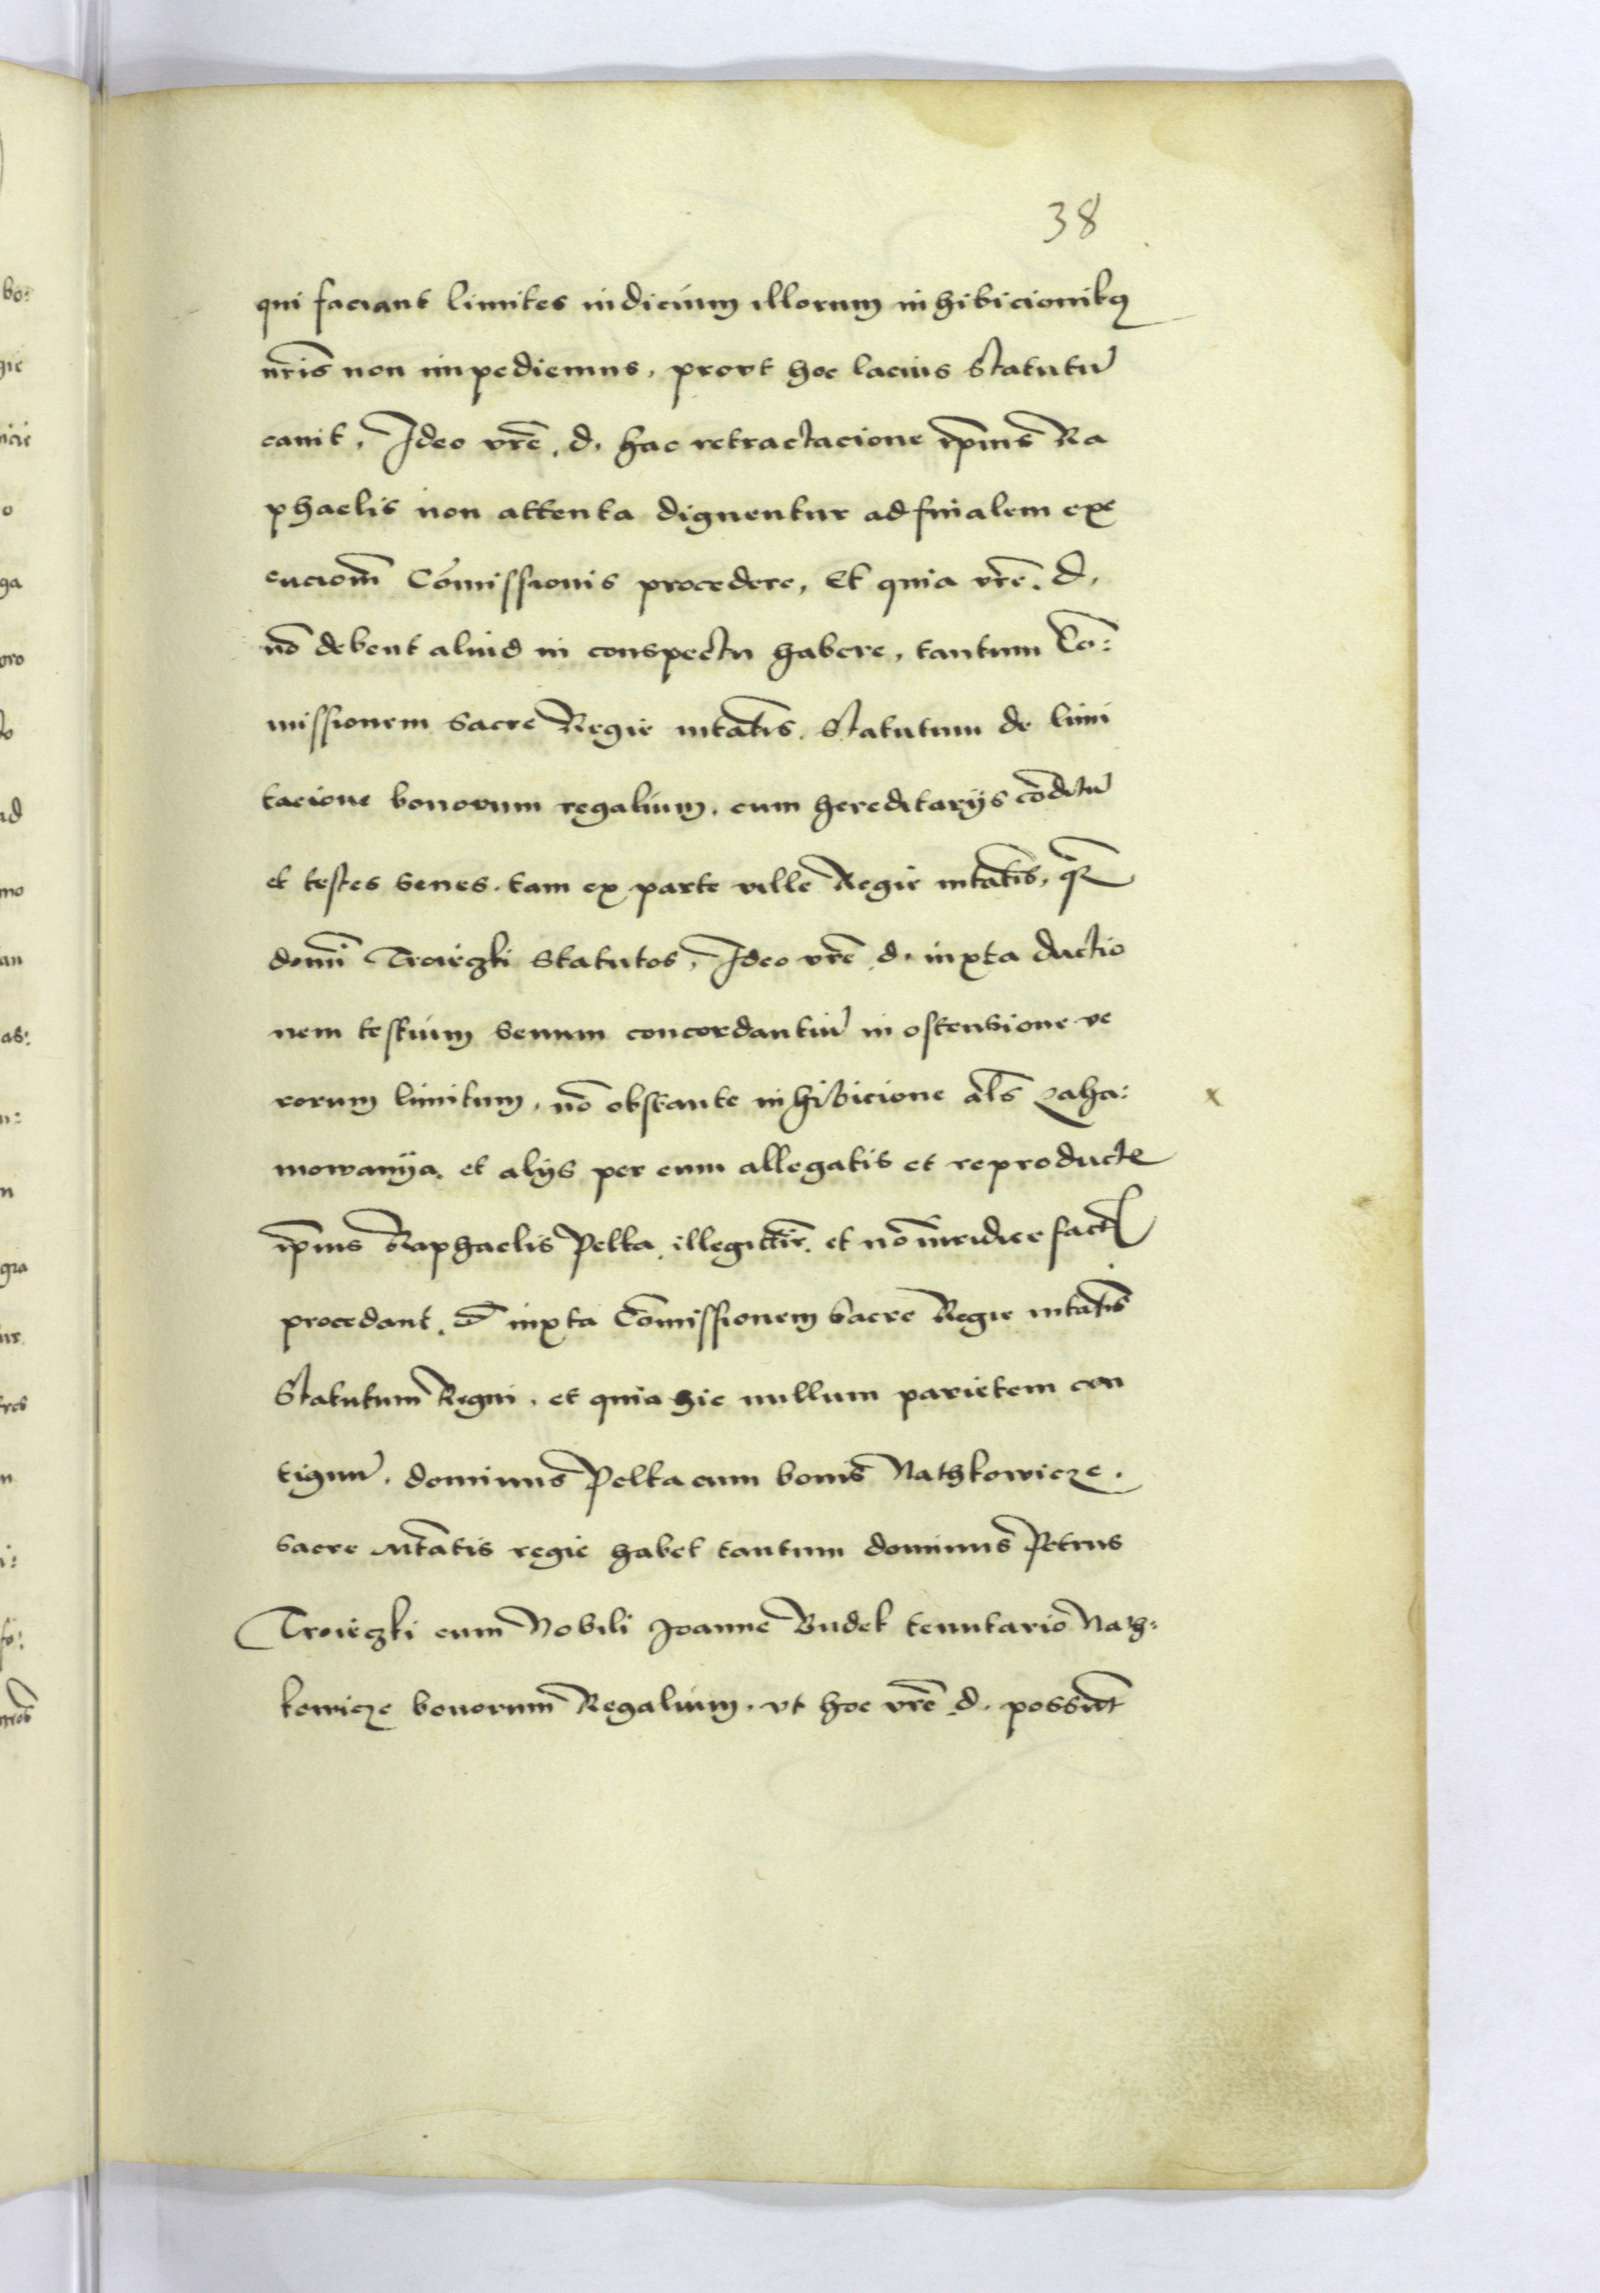 38
qui faciant limites iudicium illorum inhibicionibꝯ
nr̄is non impediemus, prout hoc lacius Statutū
canit, Ideo vr̄e. d. hac retractacione ip̄ius Ra
phaelis non attenta dignentur ad finalem exe
cucioni̅ Co̅missionis procedere, Et quia vr̄e. d.
no̅ debent aliud in conspectu habere, tantum Co̅:
missionem Sacre Regie mtatis. Statutum de limi
tacione bonorum regalium. cum hereditarijs co̅ditū
et testes senes. tam ex parte ville Regie mtatis, qꝫ
domi̅ Troiczki Statutos, Ideo vr̄e d. iuxta ductio
nem testium senum concordantiū in ostensione ve
rorum limitum, no̅ obstante inhibicione al̄s zaha: x
mowanÿa. et alijs per eum allegatis et reproducte
ip̄ius Raphaelis Pelka. illegittīe. et no̅ iuridice fact̄
procedant. iuxta Co̅missionem Sacre Regie mtatis
Statutum Regni. et quia hic nullum parietem con
tiguū. dominus Pelka cum bonis Nathkowicze.
Sacre Mtatis regie habet tantum dominus Petrus
Troiczki cum Nobili Joanne Budek tenutario Nath:
kowicze bonorum Regalium. vt hoc vr̄e d. possu̅t

bo:
gie
o
ga
oro
ad
mo
an
as:
n:
n
gra
ur.
tres
n